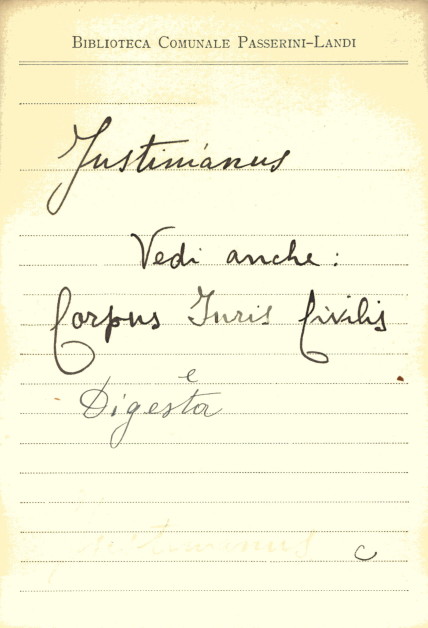 BIBLIOTECA COMUNALE PASSERINI-LANDI
Justinianus
Vedi anche:
Corpus Juris Civilis
e
Digesta
c